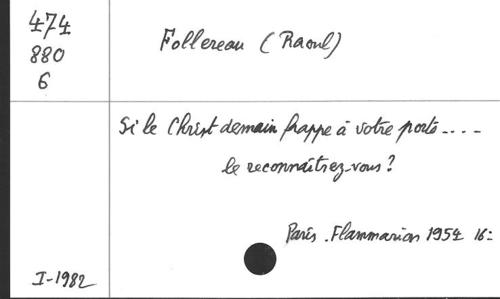 474
880
6
Follereau (Raoul)
Si le Christ demain frappe à votre porte....
le reconnaîtrez-vous?
Paris. Flammarion 1954 16=
I-1982